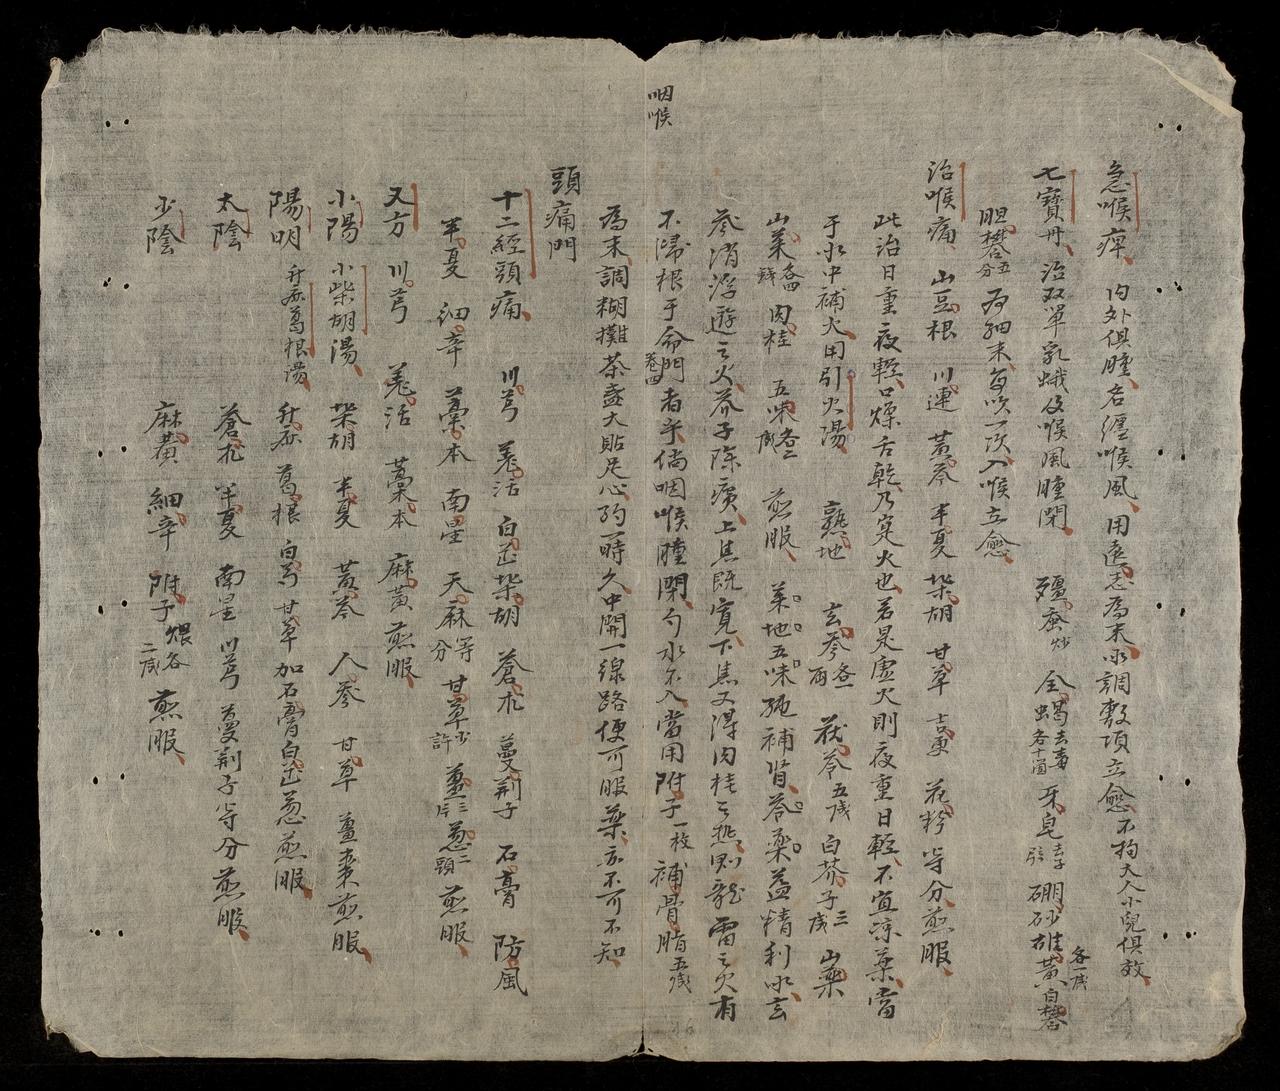 咽喉
急喉痺 内外俱腫名纏喉風用遠志為末水調敷項立愈不拘大人小兒俱效
七寶丹 治双單乳蛾及喉風腫閉 殭蚕炒 全蝎去毒各十個 牙皂去子弦 硼砂 雄黄各一戔 白礬
胆礬五分 為細末每吹一次入喉立愈
治喉痛 山豆根 川連 黃芩 半夏 柴胡 甘草 吉更 花粉 等分煎服
此治日重夜輕口燥舌乾乃寔火也若是虚火則夜重日輕不宜凉藥當
于水中補火用引火湯 熟地 玄參各一両 茯苓五戔 白芥子三戔 山藥
山茱各四錢 肉桂 五味各二戔 煎服 茱地五味純補腎苓藥益精利水玄
參消浮遊之火芥子除痰上焦既寬下焦又得肉桂之熱則龍雷之火有
不歸根于命門者乎倘咽喉腫閉勺水不入當用附子一枚 補骨脂五戔
卷四
為末調糊攤茶盞大貼足心約一時久中開一線路便可服藥亦不可不知
頭痛門
十二經頭痛 川芎 羗活 白芷 柴胡 蒼朮 蔓荆子 石膏 防風
半夏 細辛 藁本 南星 天麻等分 甘草少許 薑三片 葱二頭 煎服
又方 川芎 羗活 藁本 麻黄 煎服
小陽 小柴胡湯 柴胡 半夏 黃芩 人參 甘草 薑棗煎服
陽明 升麻葛根湯 升麻 葛根 白芍 甘草 加石膏白芷葱煎服
太陰 蒼朮 半夏 南星 川芎 蔓荆子等分煎服
少陰 麻黄 細辛 附子煨各二戔 煎服